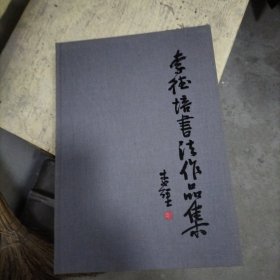 李德培書法作品集